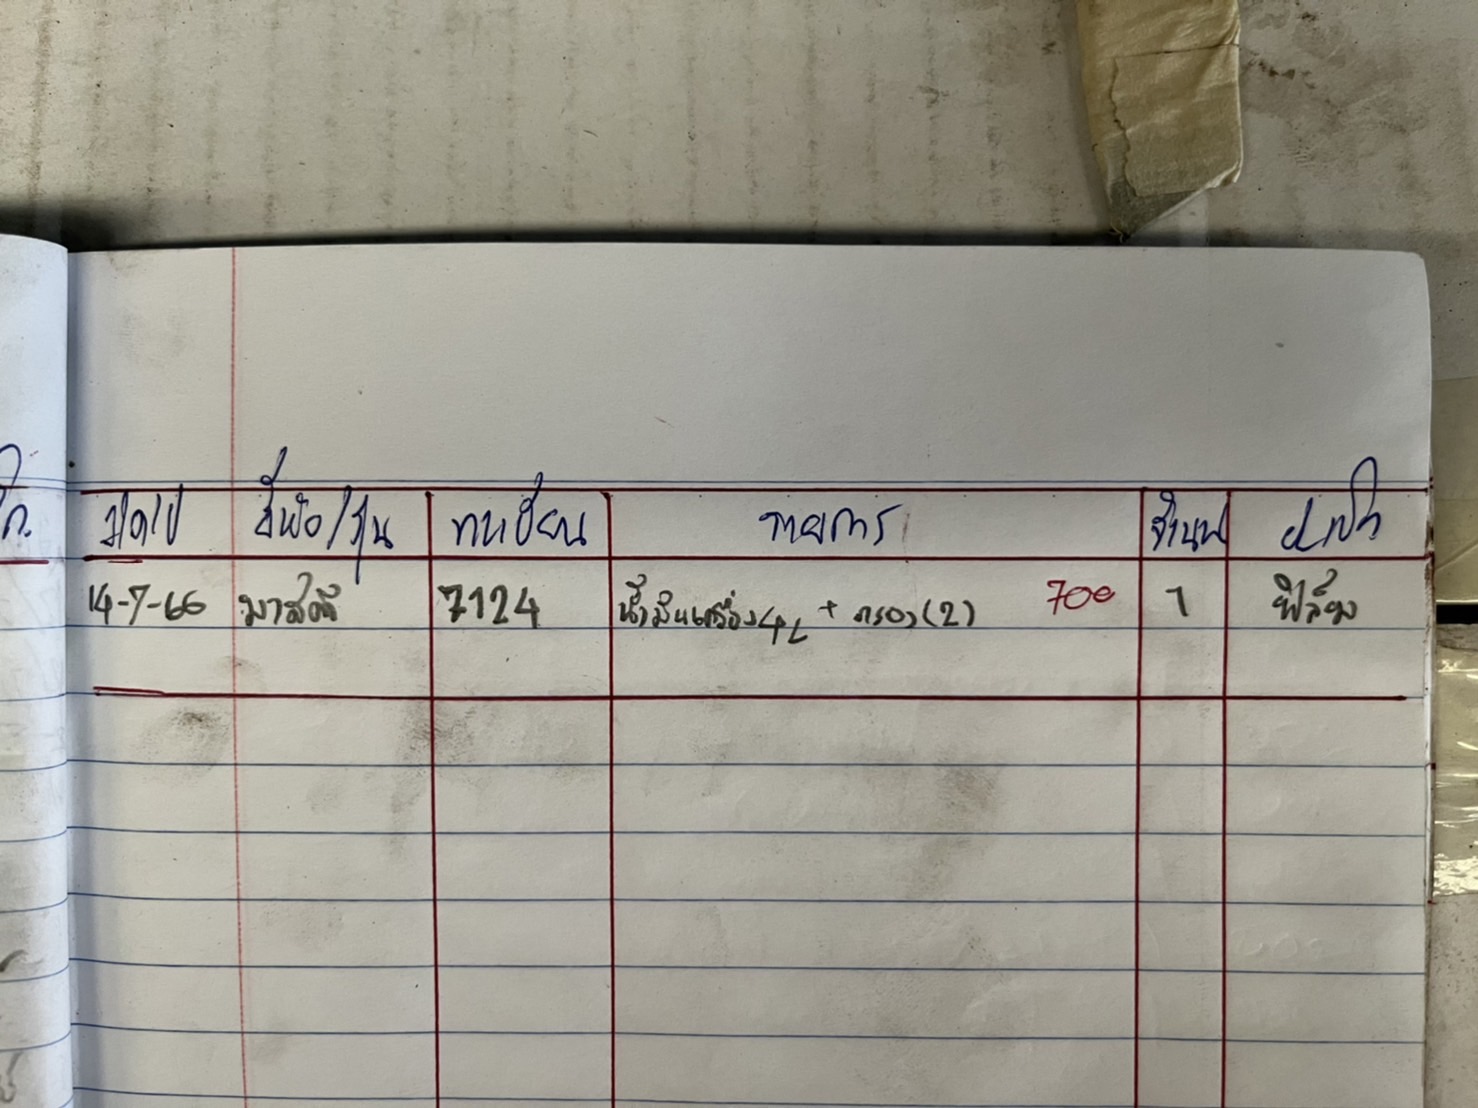 ว/ด/ป ยี่ห้อ/รุ่น ทะเบียน รายการ จำนวน ผู้เบิก
14-7-66 มาสด้า 7124 น้ำมันเครื่อง 4L + กรอง (2) 700 1 ฟิล์ม